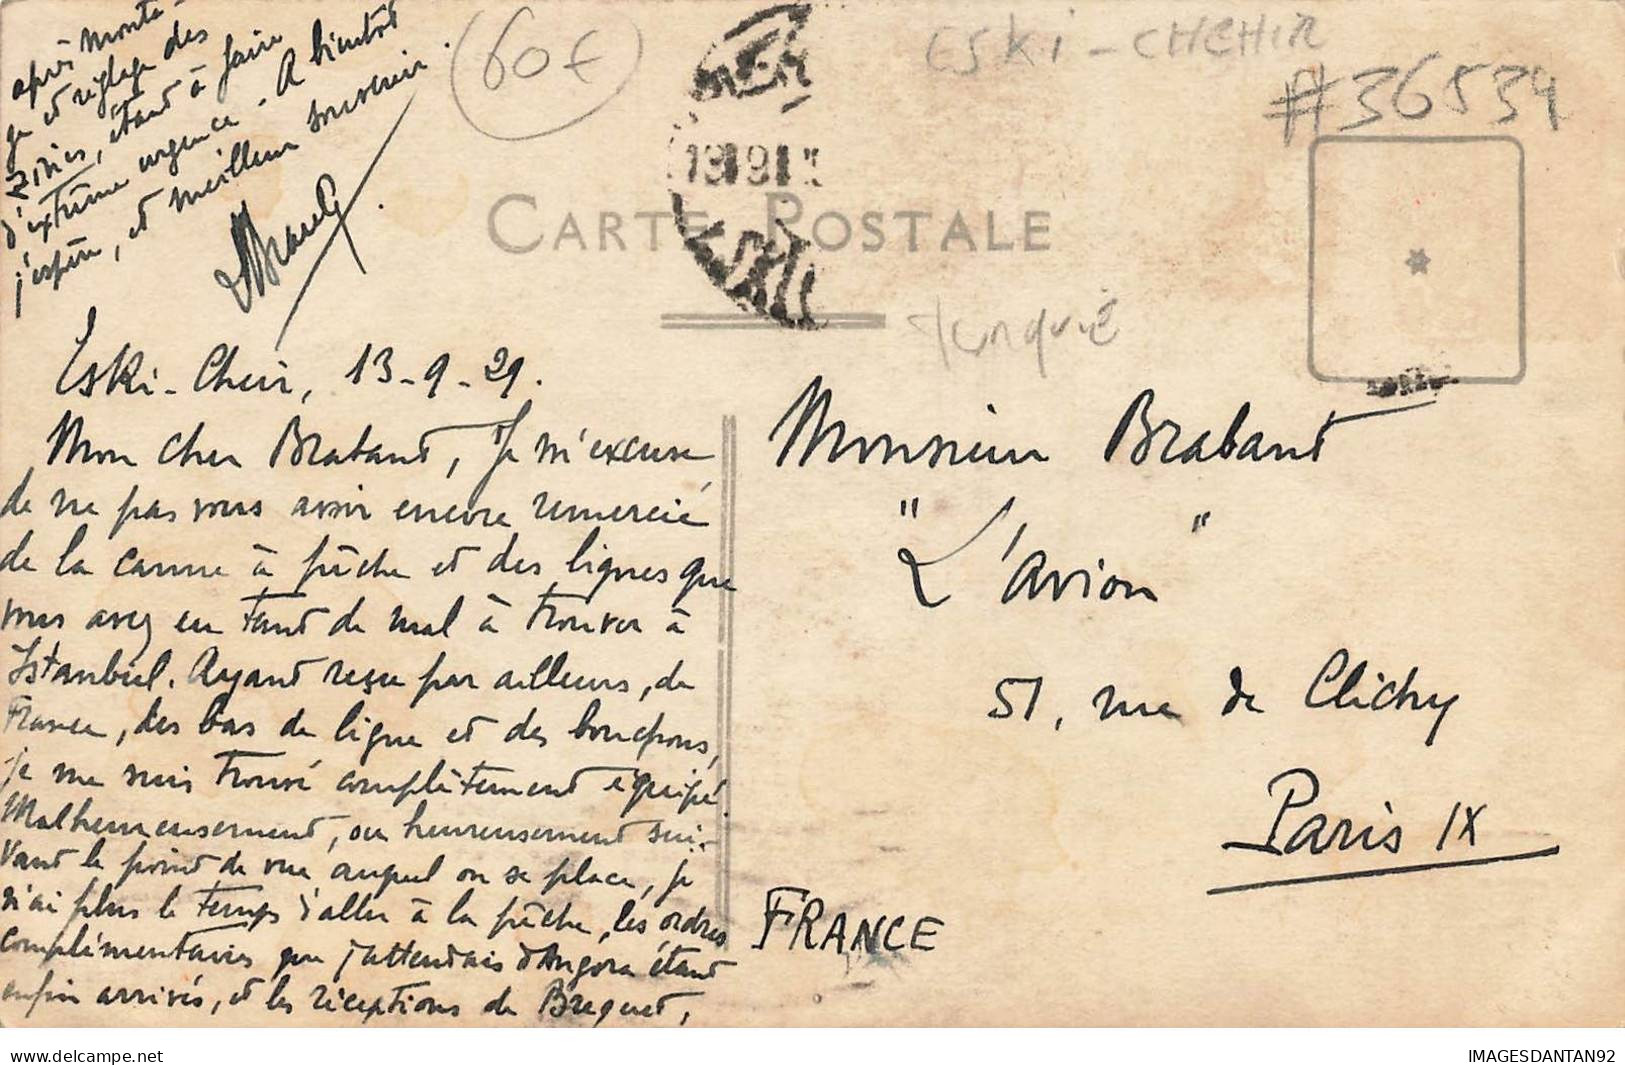 60€
ESKI-CHCHIR
#36534
CARTE POSTALE
Turquie
Eski-Cheir, 13-9-29.
Mon cher Brabant, Je m'excuse
de ne pas vous avoir encore remercié
de la canne à pêche et des lignes que
vous avez eu tant de mal à trouver à
Istanbul. Ayant reçu par ailleurs, de
France, des bas de ligne et des bouchons,
je me suis trouvé complètement équipé.
Malheureusement, ou heureusement sui-
vant le point de vue auquel on se place, je
n'ai plus le temps d'aller à la pêche, les ordres
complémentaires que j'attendais d'Angora étant
enfin arrivés, et les réceptions de Breguet,
après monta-
ge et réglage des
Zivies, étant à faire
d'extrême urgence. A bientôt
j'espère, et meilleur souvenir.
Monsieur Brabant
"L'Avion"
51, rue de Clichy
Paris IX
FRANCE
delcampe.net
IMAGESDANTAN92